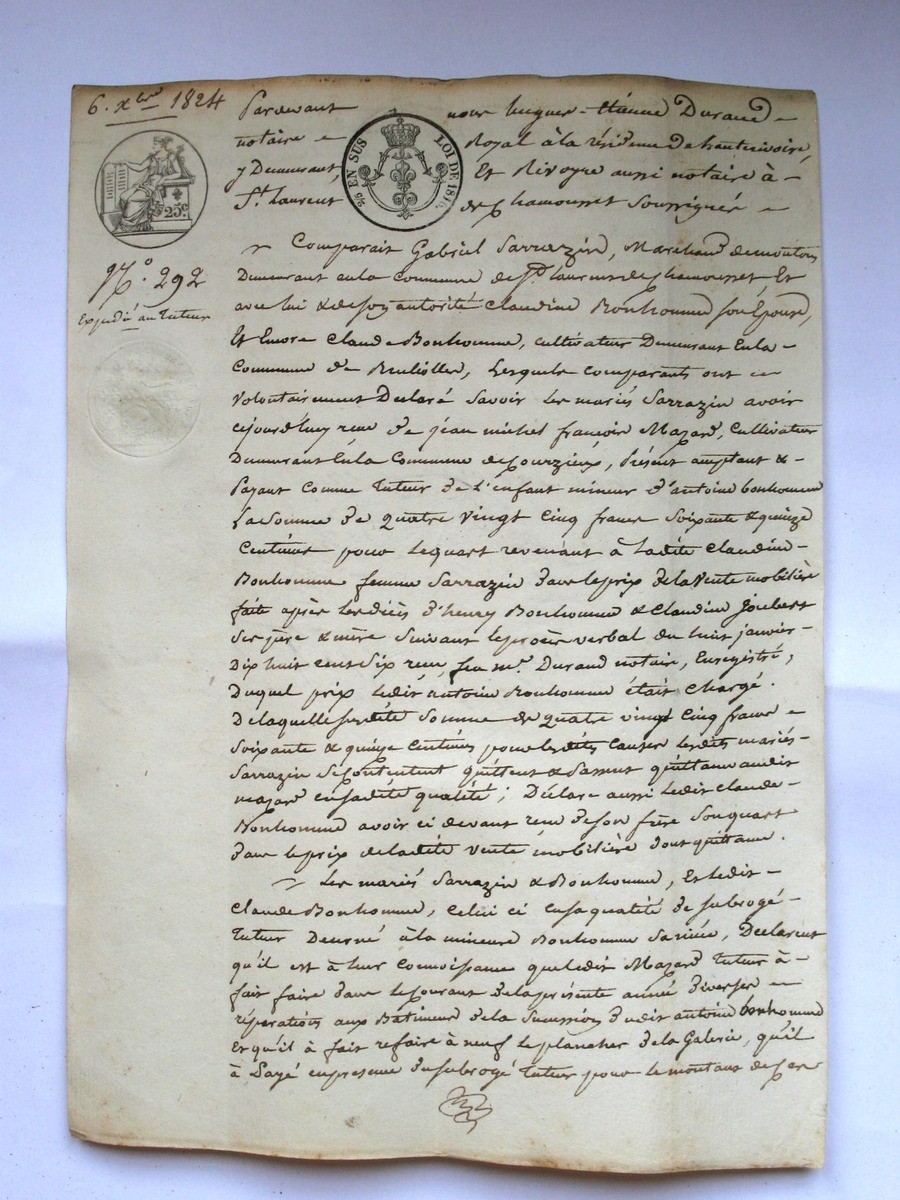 6. xbre 1824
25c
N.º 292
Expédié au Tuteur
Pardevant nous hugues-étienne Durand
notaire Royal à la résidence de hauterivoire,
y Demeurant, Et Rivoyre aussi notaire à
St. Laurent de Chamousset Soussignés
5/6 EN SUS LOI DE 1816
Comparait Gabriel Sarrazin, Marchand de moutons
Demeurant en la Commune de St. laurent de Chamousset Et
avec lui & de Son autorité Claudine Bonhomme Son Épouse,
Et Encore Claude Bonhomme, cultivateur Demeurant En la
Commune de Brullioles, Lesquels comparants ont
volontairement Déclaré Savoir Les mariés Sarrazin avoir
cejourd'huy reçu de jean michel françois Mazard, Cultivateur
Demeurant En la Commune de Courzieux, Présent acceptant &
Payant Comme Tuteur de L'enfant mineur d'antoine bonhomme
La Somme de quatre vingt cinq francs Soixante & quinze
Centimes pour le quart revenant à Ladite Claudine
Bonhomme femme Sarrazin dans le prix de la vente mobilière
faite après Les décès d'henry Bonhomme & Claudine Joubert
Ses père & mère Suivant le procès verbal du huit janvier
Dix huit cent Six reçu, feu me. Durand notaire, Enregistré,
Duquel prix ledit antoine Bonhomme était chargé.
De laquelle Susdite Somme de quatre vingt cinq francs
Soixante & quinze Centimes pour les dites Causes lesdits mariés
Sarrazin Se Contentent quittent & Passent quittance audit
mazard en sadite qualité; Déclare aussi Ledit Claude
Bonhomme avoir ci devant reçu de son frère Son quart
dans le prix de ladite vente mobilière dont quittance.
Les mariés Sarrazin & Bonhomme, Et Ledit
Claude Bonhomme, Celui ci en sa qualité de subrogé
Tuteur Décerné à la mineure Bonhomme Sa nièce, Déclarent
qu'il est à leur Connoissance que ledit Mazard Tuteur à
fait faire dans le Courant de la présente année diverses
réparations aux Bâtiments de la Succession dudit antoine bonhomme
Et qu'il à fait refaire à neuf le plancher de la Galerie, qu'il
à Payé en presence du subrogé Tuteur pour le montant de Ces